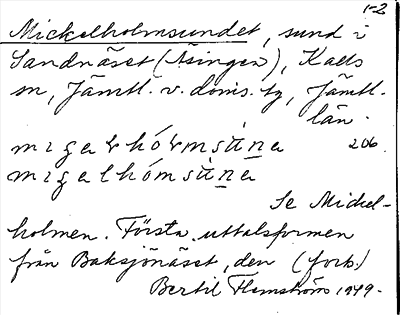 1-2
Mickelholmsundet, sund i
Sandnäset (Åsingen), Kalls
sn, Jämtl. v. doms. tg, Jämtl.
län.
migaɫhóɫmsúna 206.
migelhómsúna
Se Mickel-
holmen. Första uttalsformen
från Baksjönäset, den (forts.)
Bertil Flemström 1949.